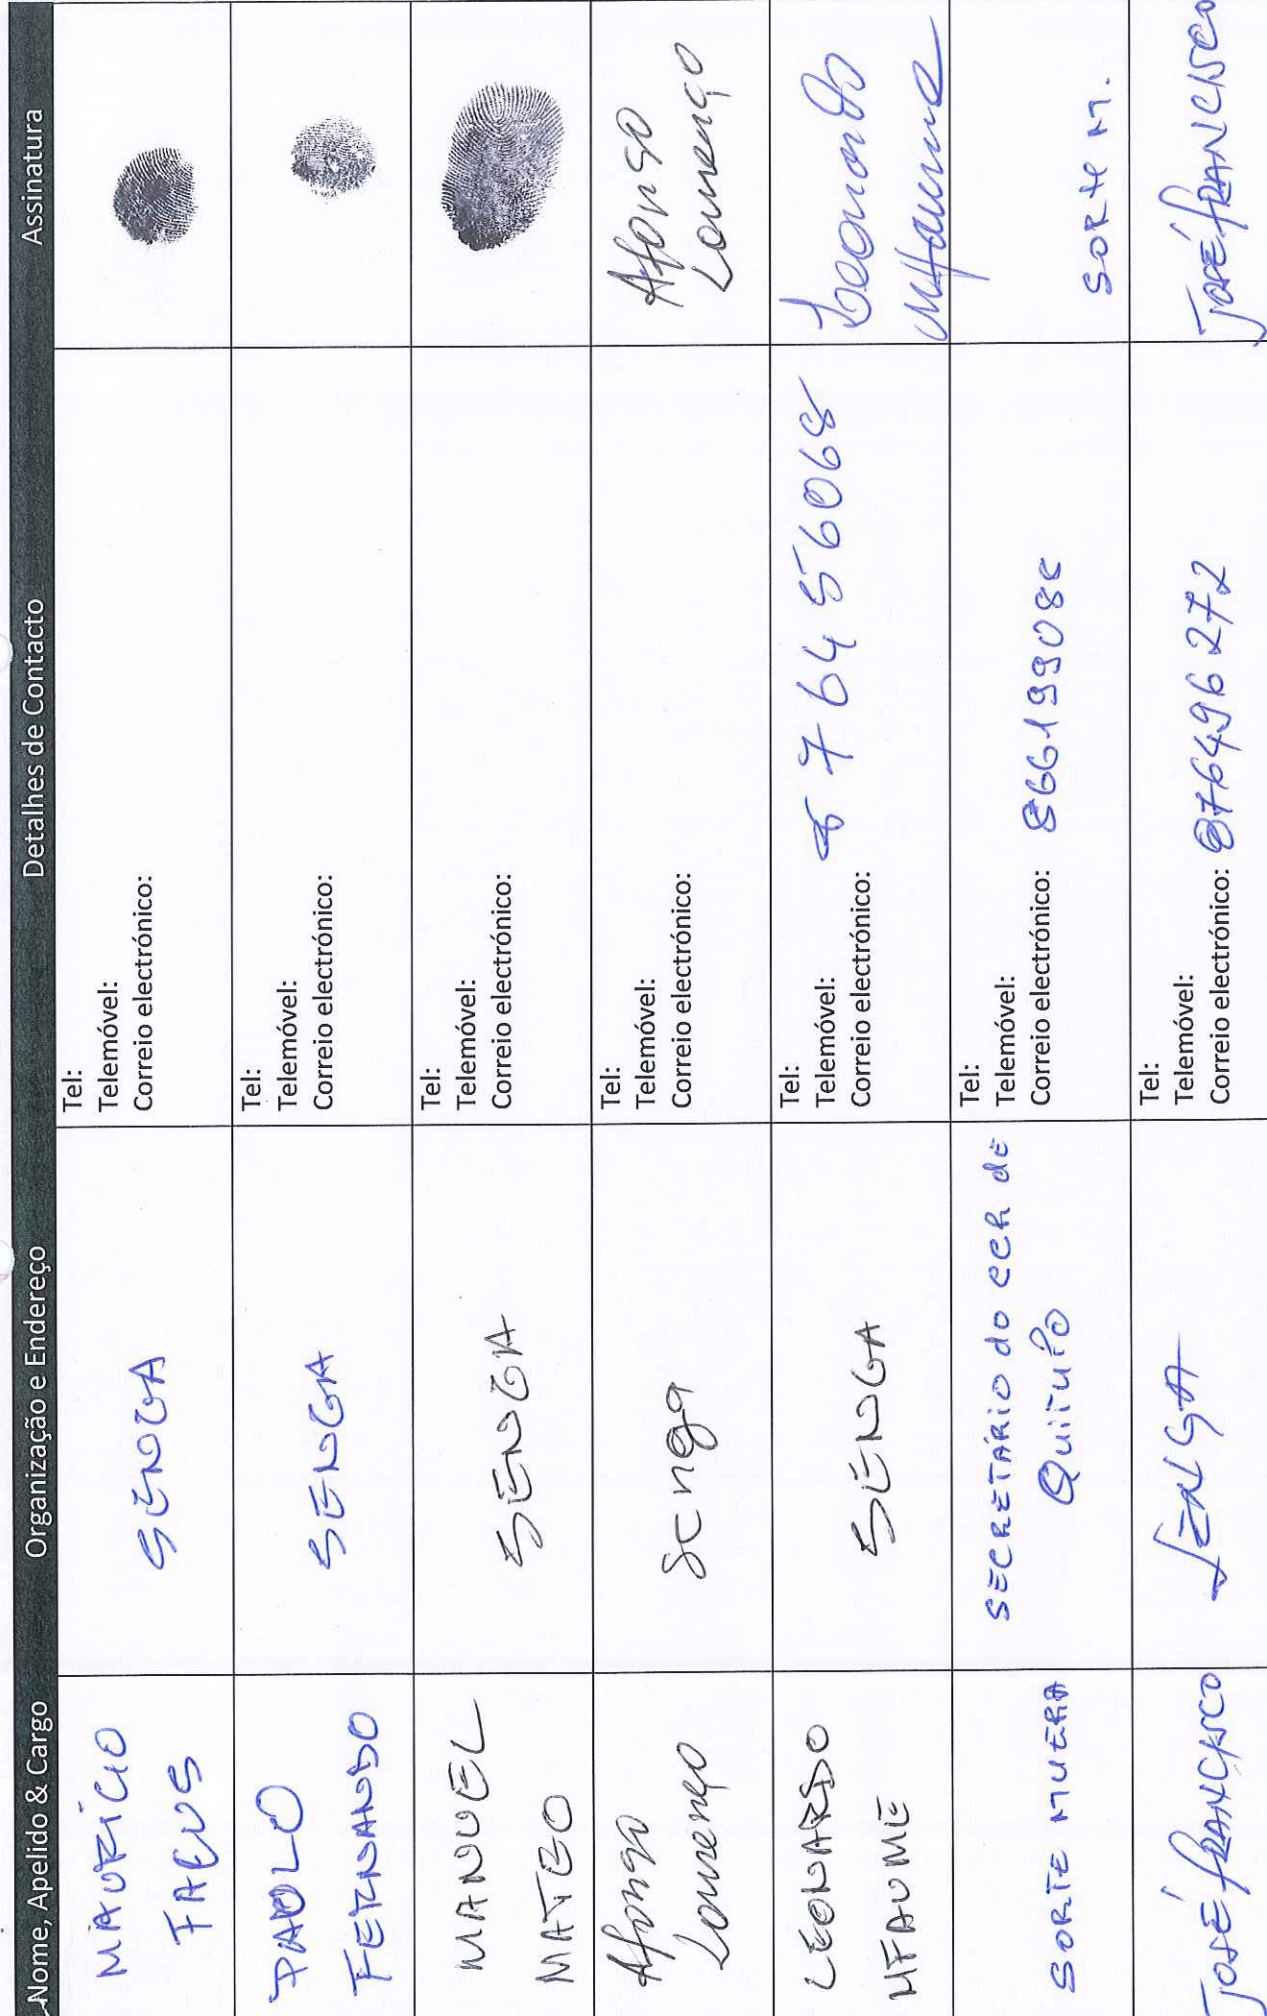 Nome, Apelido & Cargo Organização e Endereço Detalhes de Contacto Assinatura
MAURÍCIO
SENGA
Tel:
Telemóvel:
Correio electrónico:
PAOLO
FERNANDO
SENGA
Tel:
Telemóvel:
Correio electrónico:
MANUEL
MATEO
SENGA
Tel:
Telemóvel:
Correio electrónico:
Afonso
Lourenço
senga
Tel:
Telemóvel:
Correio electrónico:
Afonso
Lourenço
LEONARDO
MFAUME
SENGA
Tel:
Telemóvel: 876456068
Correio electrónico:
Leonardo
Mfaume
SORTE MUERA
SECRETÁRIO do CCR de
Quitupo
Tel:
Telemóvel:
Correio electrónico:
SORTE M.
JOSÉ FRANCISCO
SENGA
Tel:
Telemóvel:
Correio electrónico: 876496272
JOSÉ FRANCISCO